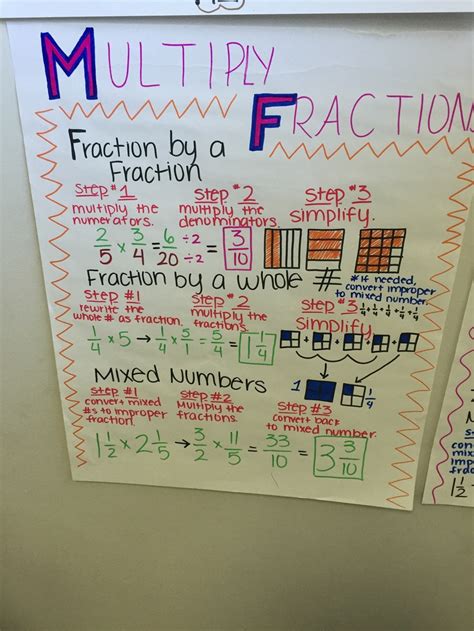 MULTIPLY
FRACTION
Fraction by a
Fraction
Step #1
multiply the
numerators.
Step #2
multiply the
denominators.
Step #3
simplify.
2/5 × 3/4 = 6/20 ÷2/÷2 = 3/10
Fraction by a whole #
* If needed,
convert improper
to mixed number.
Step #1
rewrite the
whole # as fraction.
Step #2
multiply the
fractions.
Step #3
simplify.
1/4+1/4+1/4+1/4+1/4
1/4 × 5 → 1/4 × 5/1 = 5/4 = 1 1/4
+ + + +
1
1/4
Mixed Numbers
Step #1
convert mixed
#s to improper
fraction.
Step #2
Multiply the
fractions.
Step #3
convert back
to mixed number.
1 1/2 × 2 1/5 → 3/2 × 11/5 = 33/10 = 3 3/10
con
mix
imp
frac
1 1/2